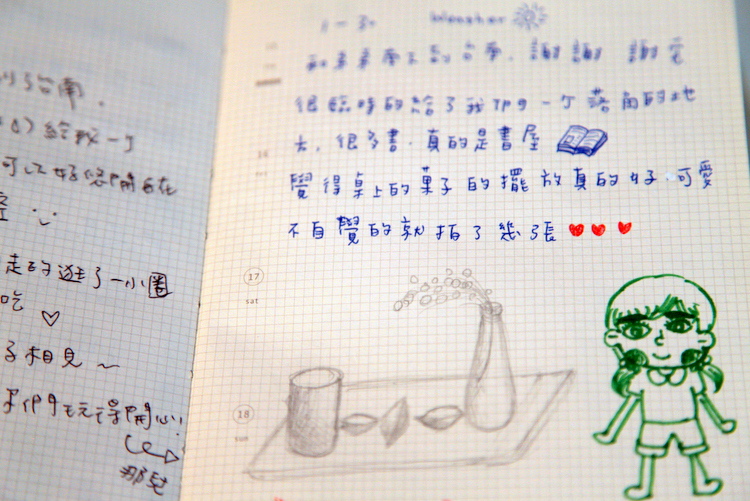 了台南.
給我一个
可以好悠閒自在
走的逛了一小圈
吃 ♡
子相見～
們玩得開心!
那兒
weather
南下到台南, 謝謝 謝宅
很臨時的給了我們一个落角的地
方, 很多書, 真的是書屋
覺得桌上的菓子的擺放真的好可愛
不自覺的就拍了幾張 ♥ ♥ ♥
16
17
sat
18
sun